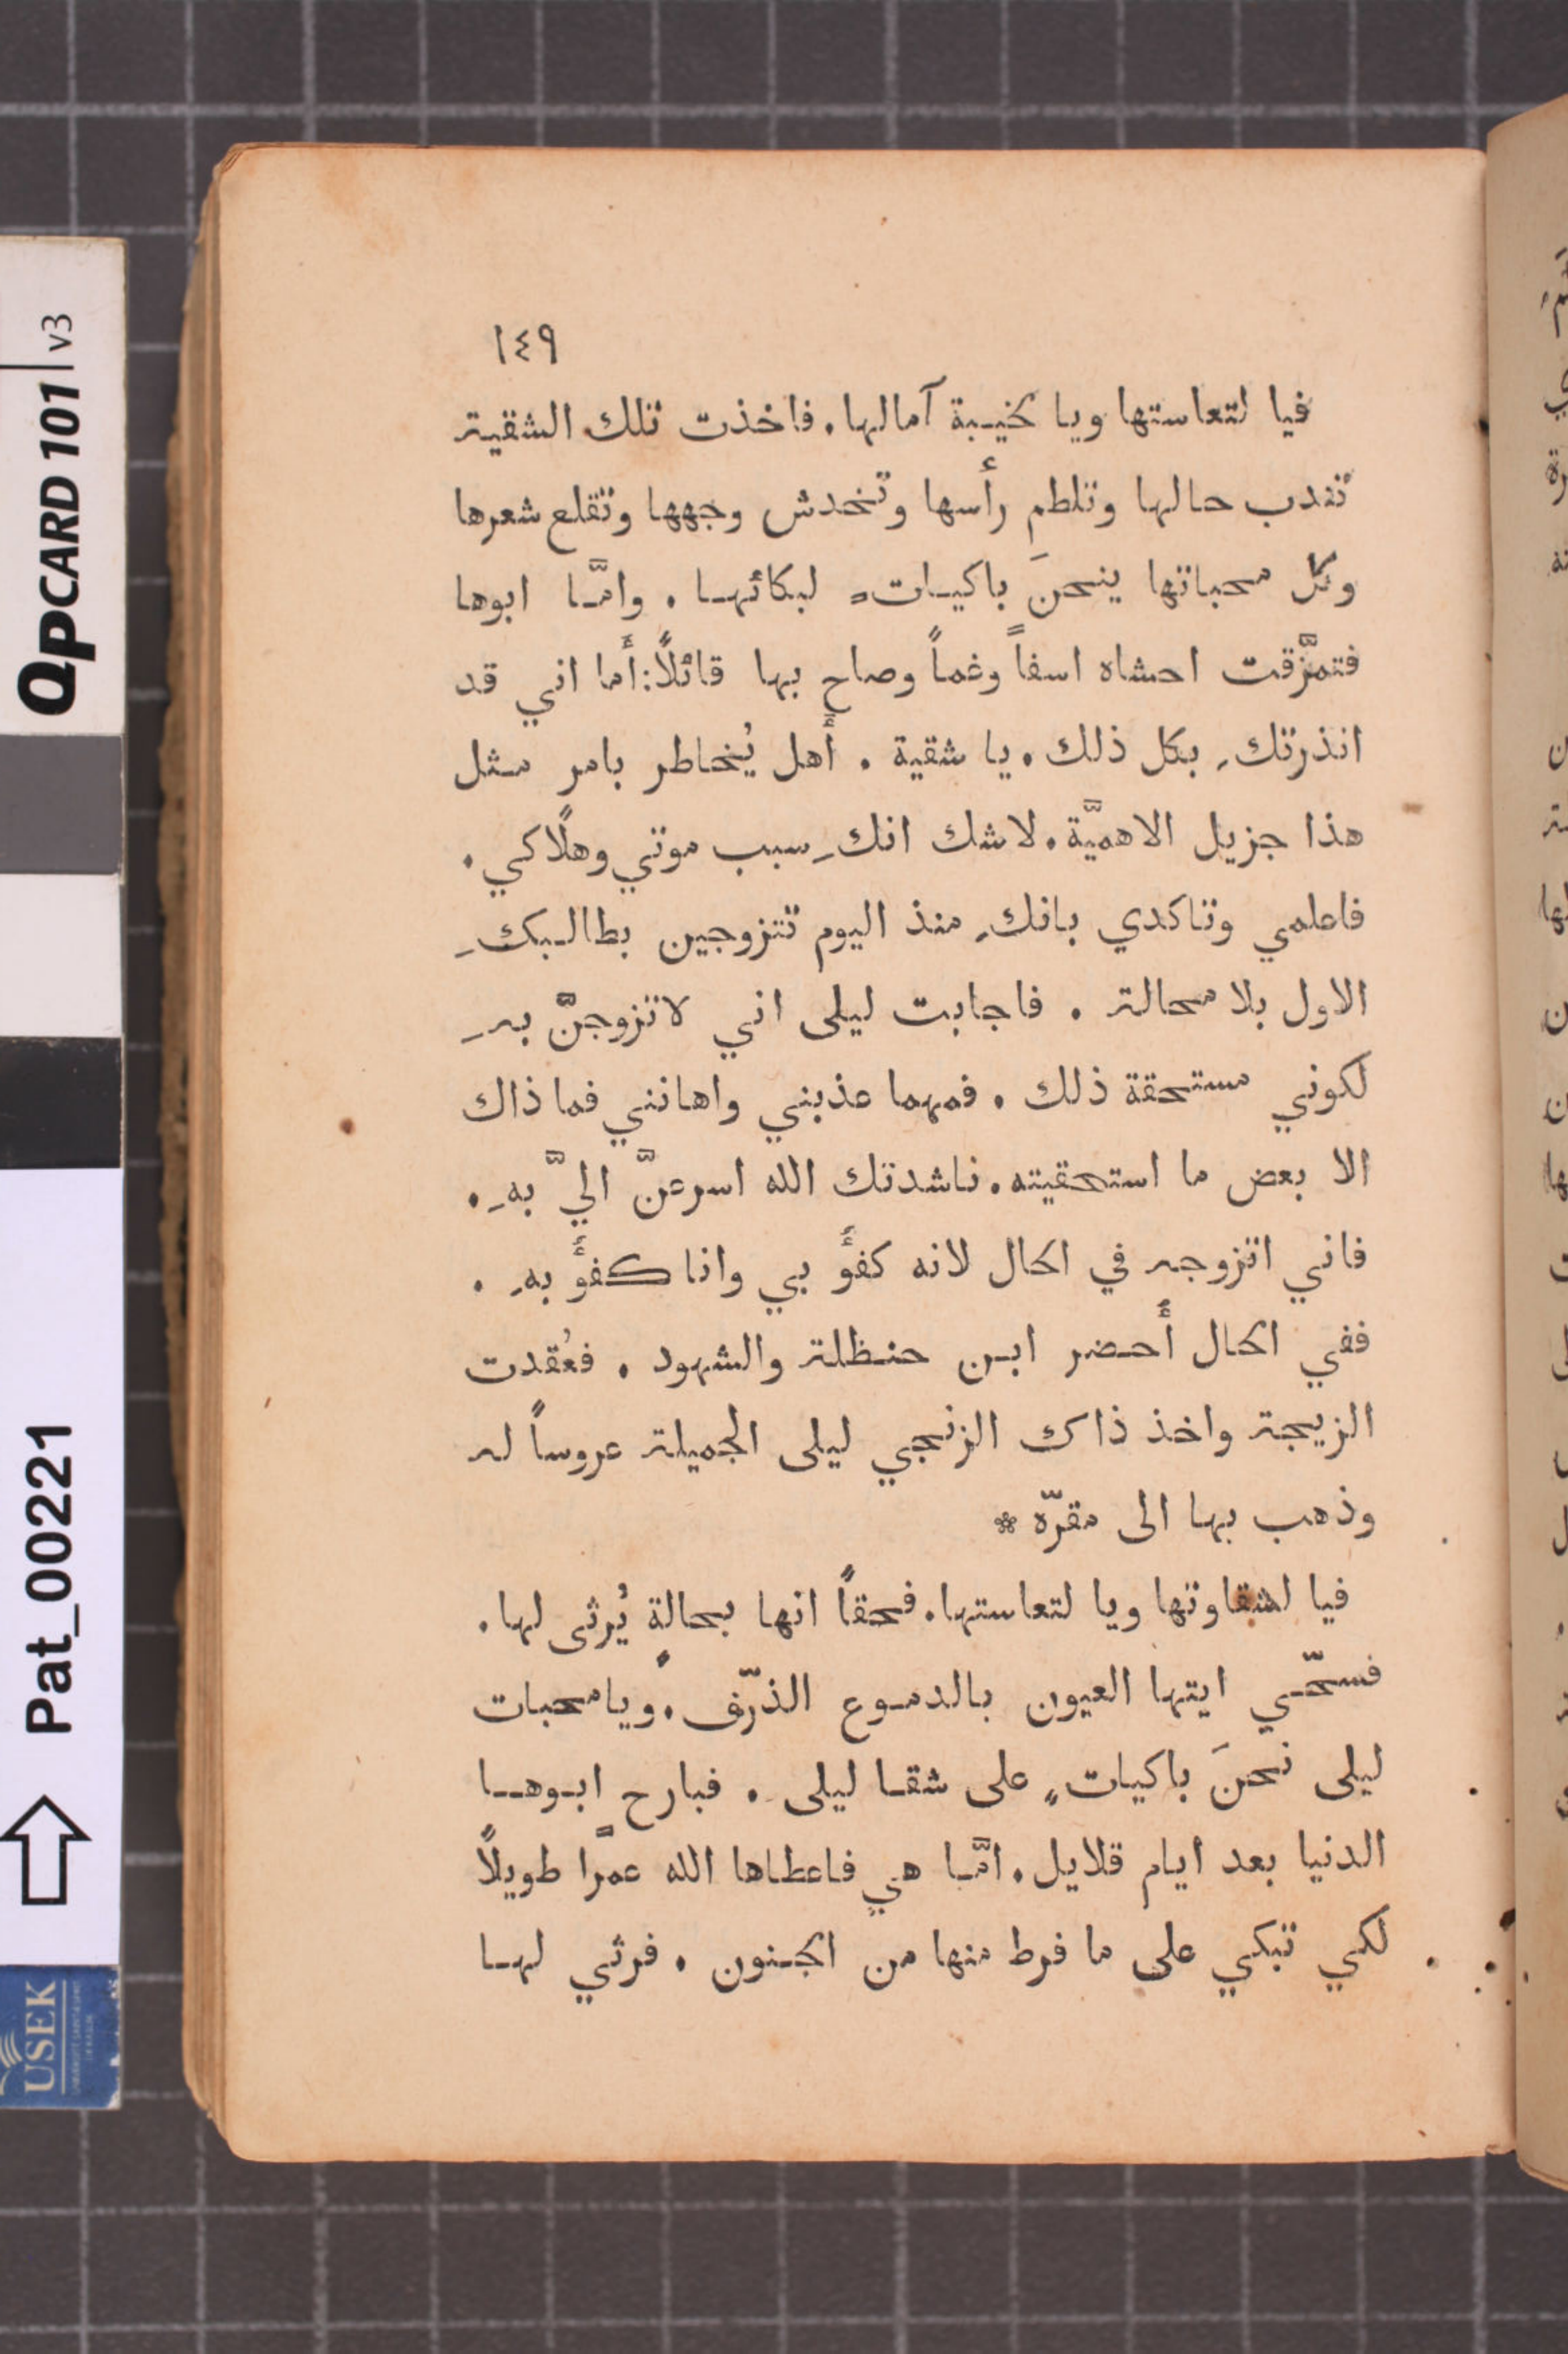 ١٤٩
فيا لتعاستها ويا لخيبة آمالها. فاخذت تلك الشقية
تندب حالها وتلطم رأسها وتخدش وجهها وتقلع شعرها
وكل محباتها ينحنَ باكياتٍ لبكائها. وامّا ابوها
فتمزَّقت احشاه اسفاً وغماً وصاح بها قائلاً: أما اني قد
انذرتكِ بكل ذلك. يا شقية. أهل يُخاطر بامر مثل
هذا جزيل الاهميَّة. لاشك انكِ سبب موتي وهلاكي.
فاعلمي وتاكدي بانكِ منذ اليوم تتزوجين بطالبكِ
الاول بلا محالة. فاجابت ليلى اني لاتزوجنَّ بهِ
لكوني مستحقة ذلك. فمهما عذبني واهانني فما ذاك
الا بعض ما استحقيته. ناشدتك الله اسرعنَّ اليَّ بهِ.
فاني اتزوجه في الحال لانه كفؤ بي وانا كفؤ بهِ.
ففي الحال أحضر ابن حنظلة والشهود. فعُقدت
الزيجة واخذ ذاك الزنجي ليلى الجميلة عروساً له
وذهب بها الى مقرّه *
فيا لشقاوتها ويا لتعاستها. فحقاً انها بحالةٍ يُرثى لها.
فسحّي ايتها العيون بالدموع الذرّف. ويا محبات
ليلى نحنَ باكياتٍ على شقا ليلى. فبارح ابوها
الدنيا بعد ايام قلايل. امّا هي فاعطاها الله عمرًا طويلاً
لكي تبكي على ما فرط منها من الجنون. فرثي لها
QPCARD 101 v3
Pat_00221
USEK